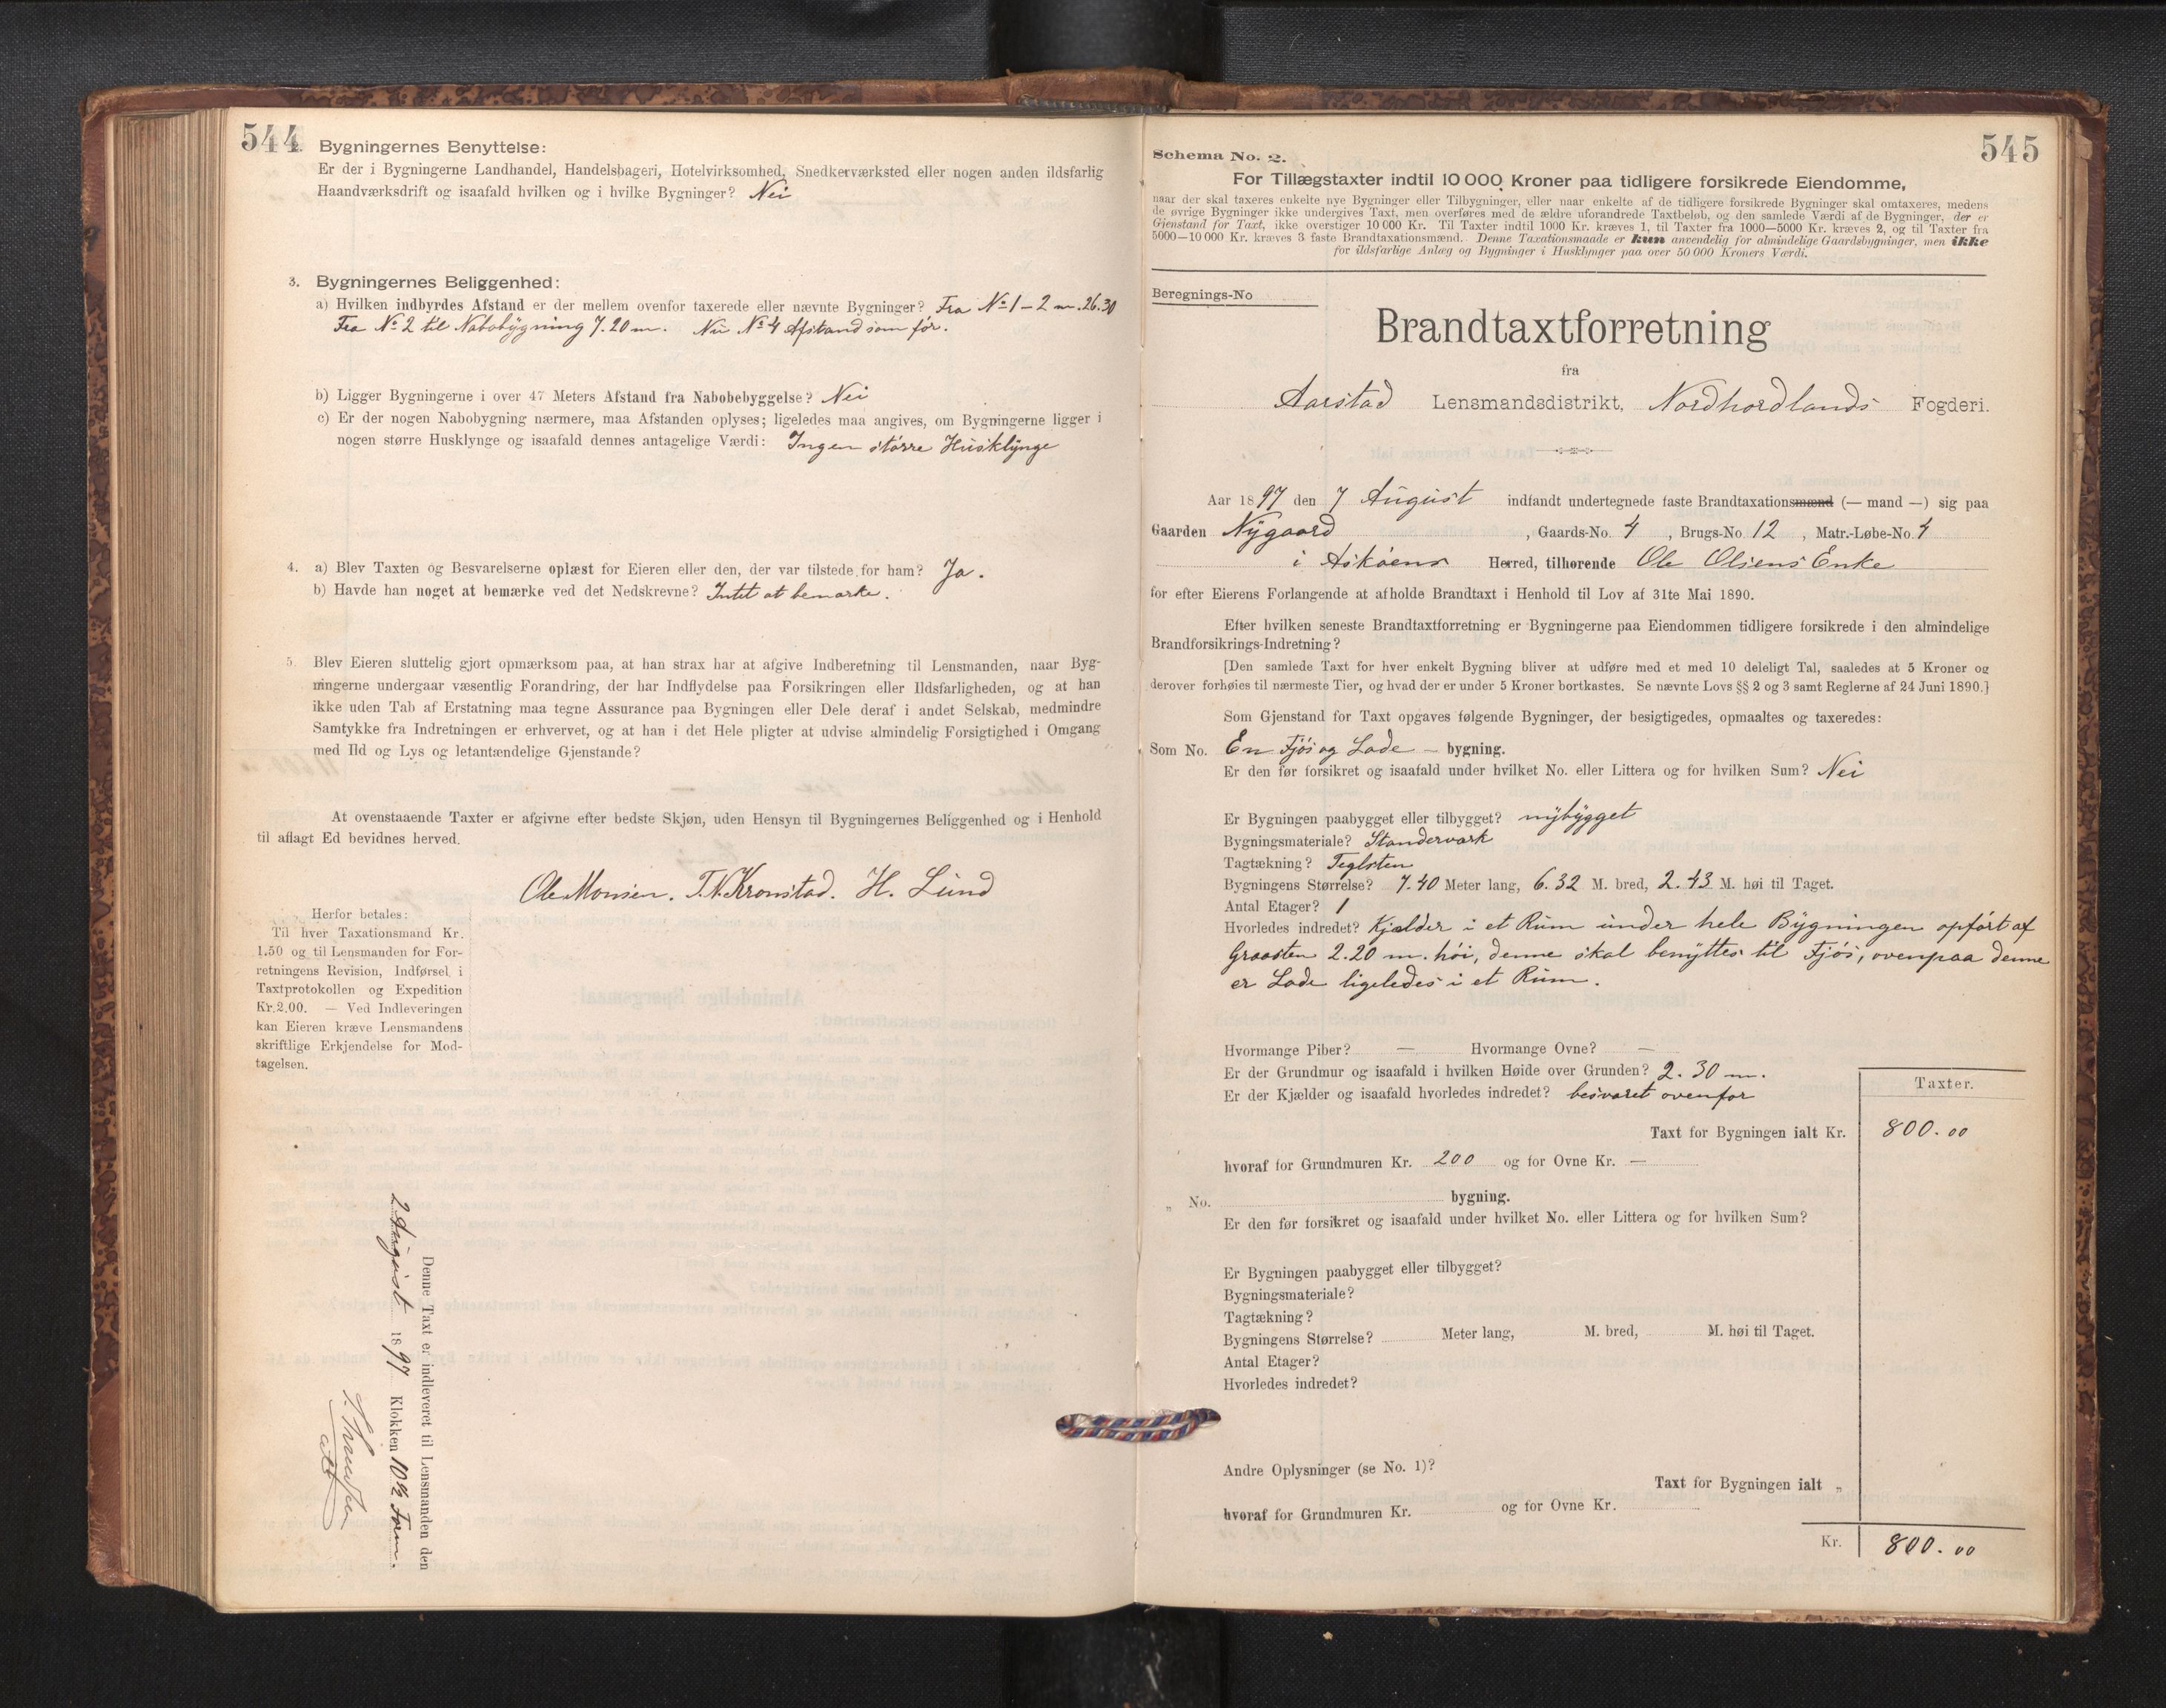 544
Bygningernes Benyttelse:
Er der i Bygningerne Landhandel, Handelsbageri, Hotelvirksomhed, Snedkerværksted eller nogen anden ildsfarlig
Haandværksdrift og isaafald hvilken og i hvilke Bygninger? Nei
3. Bygningernes Beliggenhed:
a) Hvilken indbyrdes Afstand er der mellem ovenfor taxerede eller nævnte Bygninger? Fra No 1 – 2 m. 26.30
Fra No 2 til Nabobygning 7.20 m. Nu No 4 Afstand som før.
b) Ligger Bygningerne i over 47 Meters Afstand fra Nabobebyggelse? Nei
c) Er der nogen Nabobygning nærmere, maa Afstanden oplyses; ligeledes maa angives, om Bygningerne ligger i
nogen større Husklynge og isaafald dennes antagelige Værdi: Ingen større Husklynge
4. a) Blev Taxten og Besvarelserne oplæst for Eieren eller den, der var tilstede for ham? Ja.
b) Havde han noget at bemærke ved det Nedskrevne? Intet at bemærke.
5. Blev Eieren sluttelig gjort opmærksom paa, at han strax har at afgive Indberetning til Lensmanden, naar Byg-
ningerne undergaar væsentlig Forandring, der har Indflydelse paa Forsikringen eller Ildsfarligheden, og at han
ikke uden Tab af Erstatning maa tegne Assurance paa Bygningen eller Dele deraf i andet Selskab, medmindre
Samtykke fra Indretningen er erhvervet, og at han i det Hele pligter at udvise almindelig Forsigtighed i Omgang
med Ild og Lys og letantændelige Gjenstande?
At ovenstaaende Taxter er afgivne efter bedste Skjøn, uden Hensyn til Bygningernes Beliggenhed og i Henhold
til aflagt Ed bevidnes herved.
Ole Monsen. T. N. Kronstad. H. Lund
Herfor betales:
Til hver Taxationsmand Kr.
1.50 og til Lensmanden for For-
retningens Revision, Indførsel i
Taxtprotokollen og Expedition
Kr. 2.00. — Ved Indleveringen
kan Eieren kræve Lensmandens
skriftlige Erkjendelse for Mod-
tagelsen.
Denne Taxt er indleveret til Lensmanden den
2 August 1897 Klokken 10½ Form.
545
Schema No. 2.
For Tillægstaxter indtil 10 000 Kroner paa tidligere forsikrede Eiendomme,
naar der skal taxeres enkelte nye Bygninger eller Tilbygninger, eller naar enkelte af de tidligere forsikrede Bygninger skal omtaxeres, medens
de øvrige Bygninger ikke undergives Taxt, men overføres med de ældre uforandrede Taxtbeløb, og den samlede Værdi af de Bygninger, der er
Gjenstand for Taxt, ikke overstiger 10 000 Kr. Til Taxter indtil 1000 Kr. kræves 1, til Taxter fra 1000—5000 Kr. kræves 2, og til Taxter fra
5000—10 000 Kr. kræves 3 faste Brandtaxationsmænd. Denne Taxationsmaade er kun anvendelig for almindelige Gaardsbygninger, men ikke
for ildsfarlige Anlæg og Bygninger i Husklynger paa over 50 000 Kroners Værdi.
Beregnings-No
Brandtaxtforretning
fra
Aarstad Lensmandsdistrikt, Nordhordlands Fogderi.
Aar 1897 den 7 August indfandt undertegnede faste Brandtaxationsmænd (— mand —) sig paa
Gaarden Nygaard, Gaards-No. 4, Brugs-No 12, Matr.-Løbe-No. 4
i Askøens Herred, tilhørende Ole Olsens Enke
for efter Eierens Forlangende at afholde Brandtaxt i Henhold til Lov af 31te Mai 1890.
Efter hvilken seneste Brandtaxtforretning er Bygningerne paa Eiendommen tidligere forsikrede i den almindelige
Brandforsikrings-Indretning?
[Den samlede Taxt for hver enkelt Bygning bliver at udføre med et med 10 deleligt Tal, saaledes at 5 Kroner og
derover forhøies til nærmeste Tier, og hvad der er under 5 Kroner bortkastes. Se nævnte Lovs §§ 2 og 3 samt Reglerne af 24 Juni 1890.]
Som Gjenstand for Taxt opgaves følgende Bygninger, der besigtigedes, opmaaltes og taxeredes:
Som No. En Fjøs og Lade – bygning.
Er den før forsikret og isaafald under hvilket No. eller Littera og for hvilken Sum? Nei
Er Bygningen paabygget eller tilbygget? nybygget
Bygningsmateriale? Standerværk
Tagtækning? Teglsten
Bygningens Størrelse? 7.40 Meter lang, 6.32 M. bred, 2.43 M. høi til Taget.
Antal Etager? 1
Hvorledes indredet? Kjælder i et Rum under hele Bygningen opført af
Graasten 2.20 m. høi, denne skal benyttes til Fjøs, ovenpaa denne
er Lade ligeledes i et Rum.
Hvormange Piber? — Hvormange Ovne? —
Er der Grundmur og isaafald i hvilken Høide over Grunden? 2.30 m.
Er der Kjælder og isaafald hvorledes indredet? besvaret ovenfor
Taxter.
Taxt for Bygningen ialt Kr. 800.00
hvoraf for Grundmuren Kr. 200 og for Ovne Kr. —
„ No. bygning.
Er den før forsikret og isaafald under hvilket No. eller Littera og for hvilken Sum?
Er Bygningen paabygget eller tilbygget?
Bygningsmateriale?
Tagtækning?
Bygningens Størrelse? Meter lang, M. bred, M. høi til Taget.
Antal Etager?
Hvorledes indredet?
Andre Oplysninger (se No. 1)?
Taxt for Bygningen ialt „
hvoraf for Grundmuren Kr. og for Ovne Kr.
Kr. 800.00